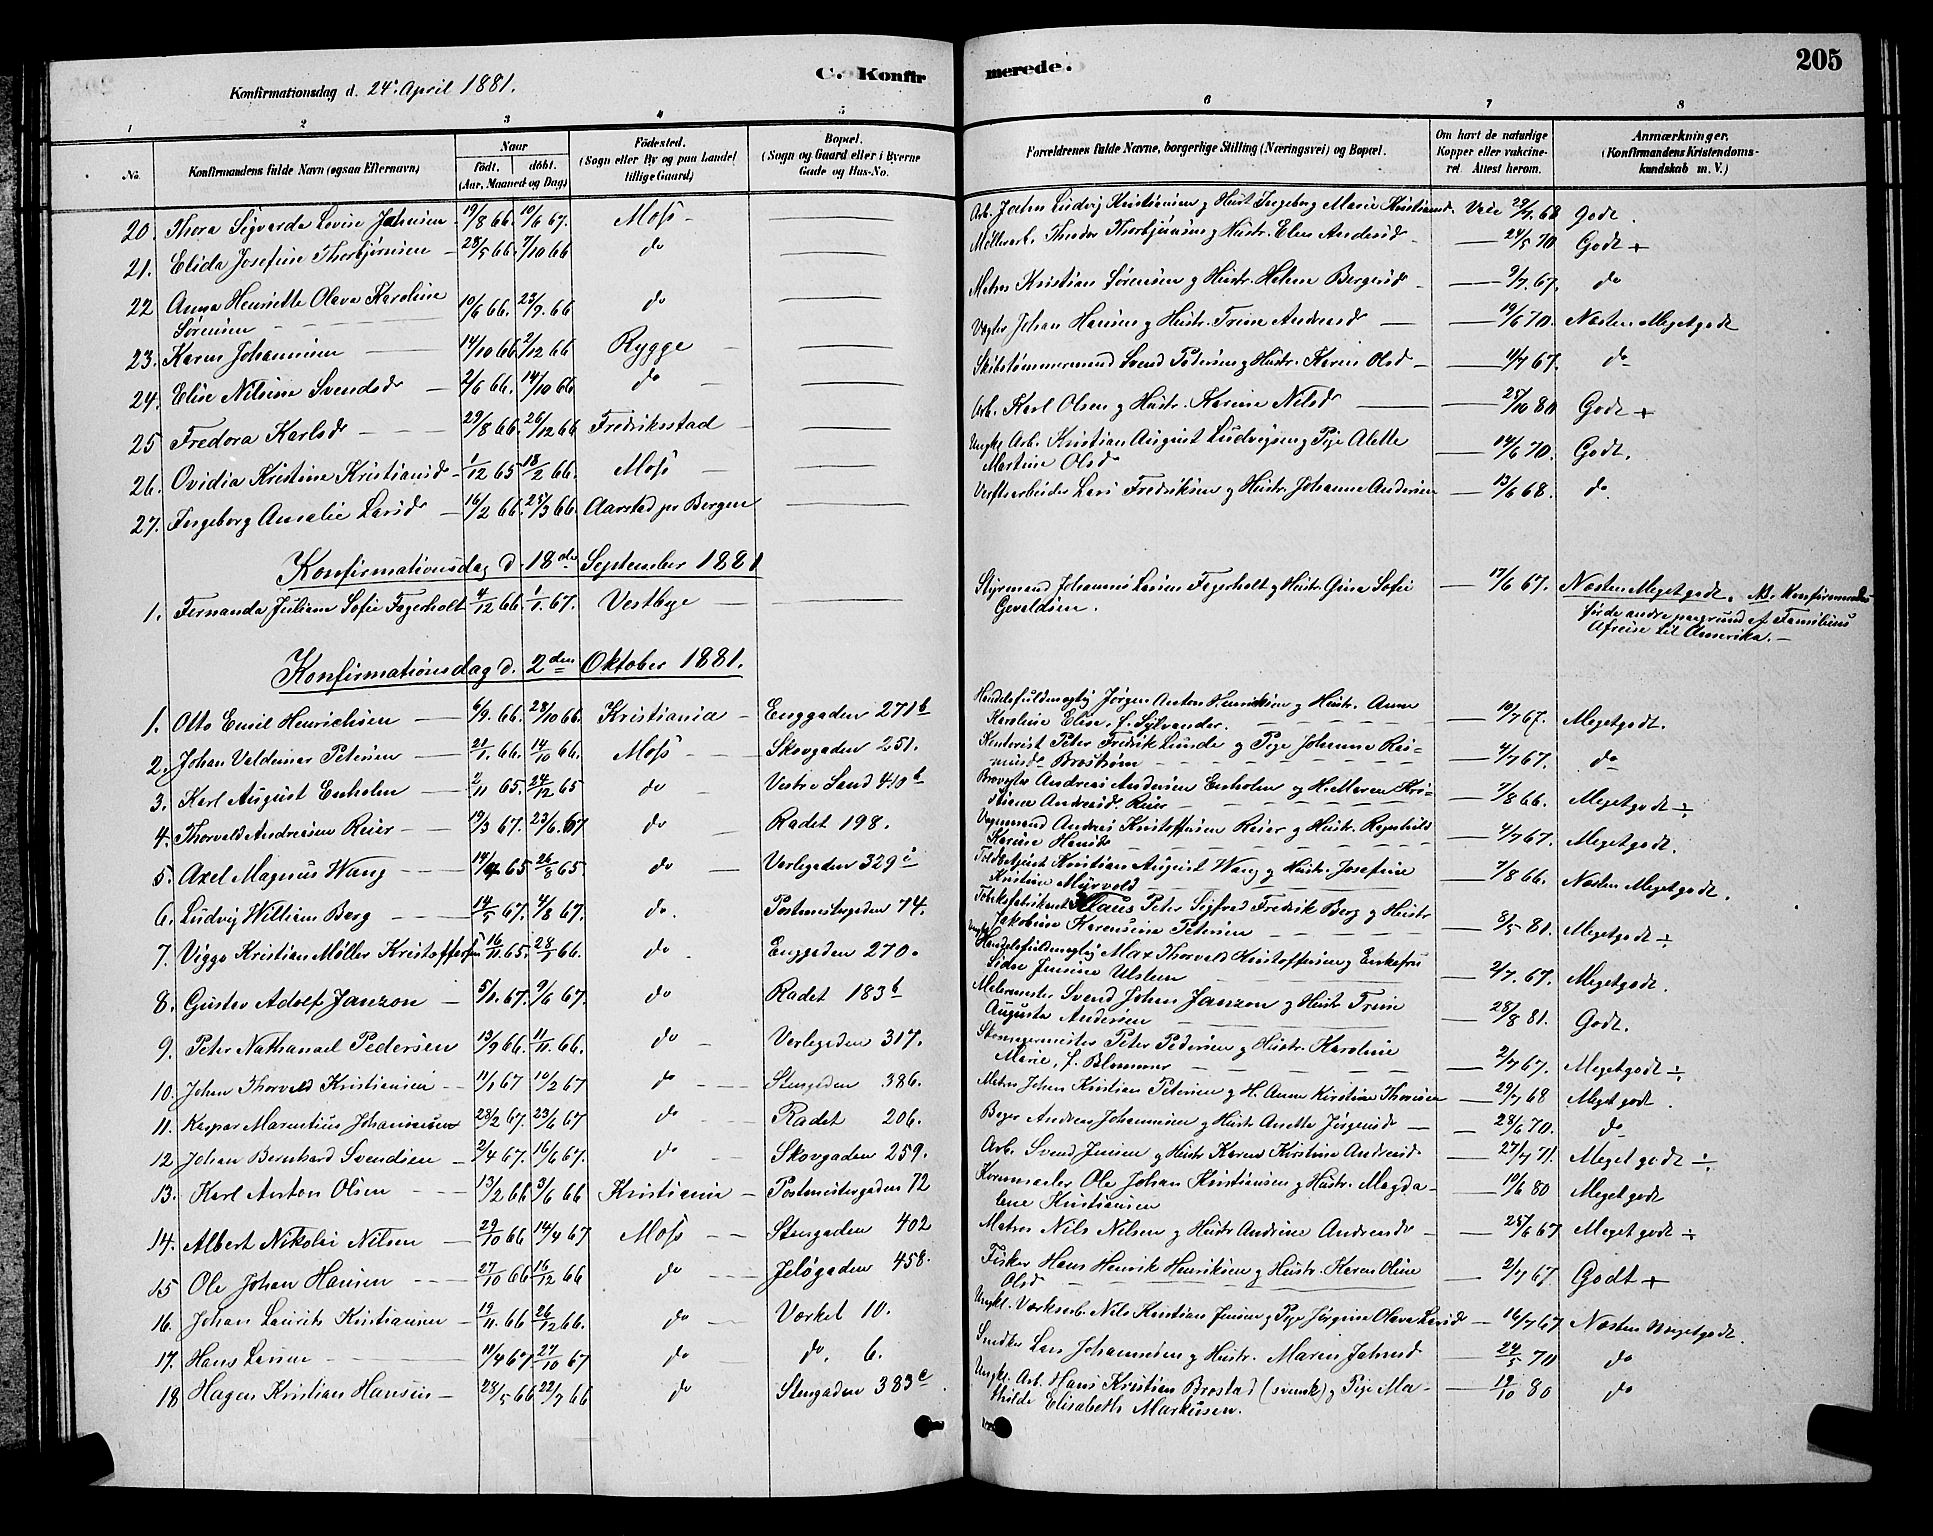 205
C. Konfir merede.
Konfirmationsdag d. 24. April 1881.
1 2 3 4 5 6 7 8
No. Konfirmandens fulde Navn (ogsaa Efternavn) Naar født, døbt. (Aar, Maaned og Dag) Fødested. (Sogn eller By og paa Landet tillige Gaard) Bopæl. (Sogn og Gaard eller i Byerne Gade og Hus-No. Forældrenes fulde Navne, borgerlige Stilling (Næringsvei) og Bopæl. Om havt de naturlige Kopper eller vakcineret Attest herom. Anmærkninger. (Konfirmandens Kristendomskundskab m. V.)
20. Thora Sigvarda Lovise Johnsen 19/8 66. 10/6 67. Moss Arb. John Ludvig Kristiansen og Hust. Ingeborg Marie Kristiansd. Godt.
21. Elida Josefine Thorbjørnsen 28/5 66. 7/10 66 do Thorbjørnsen og Hustr. Elen Andersd. 24/5 70 Godt +
22 Anna Henriette Olava Karoline 10/6 66. 23/9 66 do Matros Kristian Sørensen og Hustr. Helene Bergersd. 9/7 67. do
Sørensen
23. Karen Johannesen 14/10 66 2/12 66 Rygge Vægter Johan Hansen og Hustr. Trine Andersd 19/6 70. Næsten Megetgodt
24. Elise Nilsine Svendsd. 2/6 66. 14/10 66 do Skibstømmermand Svend Pedersen og Hustr. Karen Olsd. 4/7 67. do
25 Fredora Karlsd. 29/8 66. 26/12 66 Fredriksstad Arb. Karl Olsen og Hustr. Karine Nilsd. 25/10 80 Godt +
26. Ovidia Kristine Kristiansd. 1/12 65 18/2 66. Moss Ungkl. Arb. Kristian August Ludvigsen og Pige Alette 14/6 70. Godt.
Martine Olsd.
27. Ingeborg Amalie Larsd. 16/2 66. 25/3 66. Aarstad pr Bergen Verftsarbeider Lars Fredriksen og Hustr. Johanne Andersen 13/6 68. do.
Konfirmationsdag d. 18de September 1881
1. Fernanda Juliane Sofie Fagerholt 4/12 66. 1/1. 67. Vestbye Styrmand Johannes Larsen Fagerholt og Hustr. Gina Sofie 17/6 67. Næsten Megetgodt. NB. Konfirmeredes
Gevaldsen. før de andre paagrund af Familiens
Afreise til Amerika. —
Konfirmationsdag d. 2den Oktober 1881.
1. Otto Emil Henrichsen 6/9. 66. 28/10 66. Kristiania Enggaden 271b Handelsfuldmægtig Jørgen Anton Henriksen og Hustr. Anne 10/7 67. Megetgodt.
Karoline Elise, f. Sylvander.
2. Johan Valdemar Petersen 21/1. 66. 14/10 66. Moss Skovgaden 251. Kontorist Peter Fredrik Lunde og Pige Johanne 4/7 67. do
Broström
3. Karl August Enholm 2/11 65. 24/12 65 do Vestre Sand 410b Andreas Andersen Enholm og H. Maren Kri- 7/8 66. Megetgodt ÷
stine Andersd. Reier
4. Thorvald Andreassen Reier 19/3 67. 23/6. 67 do Radet 198. Vognmand Andreas Kristoffersen Reier og Hustr. Regnhild 4/7 67. Megetgodt.
Karine Hansd.
5. Axel Magnus Wang 26/8 65 do Verlegaden 329 Kristian August Wang og Hustr. Josefine 7/8 66. Næsten Megetgodt.
Kristine Myrvold
6. Ludvig William Berg 14/5 67. 4/8 67. do. Postmestergaden 74. Klaus Peter Sigfred Fredrik Berg og Hustr. 8/5 81. Megetgodt ÷
Jakobine Karensine Petersen
7. Viggo Kristian Møller Kristoffersen 16/11. 65. 28/1 66. do. Enggaden 270. Handelsfuldmægtig Max Thorvald Kristoffersen og Enkefru 2/7. 67. Megetgodt.
Jensine Ulstein
8. Gustav Adolf Janzon 5/1. 67. 9/6 67. do Radet 183b Malermester Svend Johan Janzon og Hustr. Trine 28/8 81. Godt.
Augusta Andersen
9. Peter Nathanael Pedersen 13/9 66. 11/11. 66. do Verlegaden 317. Peter Pedersen og Hustr. Karoline 2/7 67. Megetgodt ÷
Marie, f.
10. Johan Thorvald Kristiansen 11/1 67 10/2 67 do Stengaden 386. Matros Johan Kristian Petersen og H. Anne Kirstine Thoresen 29/7 68 Megetgodt.
11. Kaspar Marentius Johannesen 28/2 67. 23/6 67 do Radet 206. Bager Andreas Johannesen og Hustr. Anette Jørgensd. 28/6 70. do
12 Johan Bernhard Svendsen 2/4 67. 16/6 67. do Skovgaden 259. Arb. Svend Jensen og Hustr. Karen Kirstine Andersd. 27/7 71. Megetgodt ÷
13. Karl Anton Olsen 13/2 66 3/6 66 Kristiania Postmestergaden 72 Kornmaaler Ole Johan Kristiansen og Hustr. Magda- 19/6 80 Megetgodt
lene Kristiansen
14. Albert Nikolai Nilsen 29/10 66 14/4 67 Moss Stengaden 402 Matros Nils Nilsen og Hustr. Andrine Andersd. 25/6 67 Megetgodt ÷
15 Ole Johan Hansen 27/10 66 16/12 66 do Jeløgaden 458. Fisker Hans Henrik Henriksen og Hustr. Karen Oline 2/7 67. Godt +
Olsd
16. Johan Laurits Kristiansen 19/11. 66 26/12 66. do Værket 10. Ungkl. Værksarb. Nils Kristian Jensen og Pige Jørgine Olava Larsd. 16/7 67 Næsten Megetgodt.
17. Hans Larsen 11/4 67 27/10 67 do do. 6. Snedker Lars Johannesen og Hustr. Maren Johnsd 24/5 70 do
18 Hagen Kristian Hansen 28/5 66 22/7 66 do Stengaden 383c Ungkl. Arb. Hans Kristian Brostad (svensk) og Pige Ma- 19/10 80 do
thilde Elisabeth Markusen.